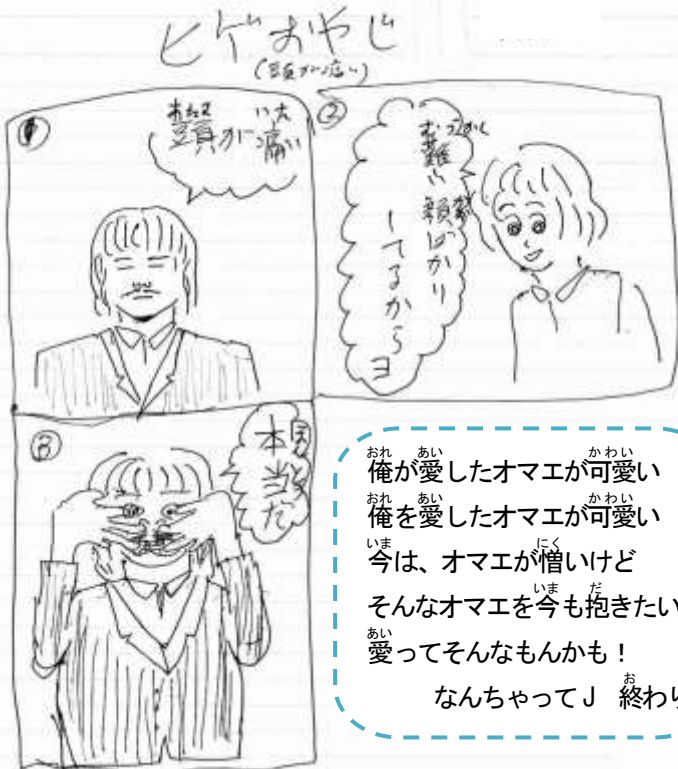 ヒゲおやじ
(頭が痛い)
①
頭が痛い
②
難い顔ばかり
してるからヨ
③
本当だ
俺が愛したオマエが可愛い
俺を愛したオマエが可愛い
今は、オマエが憎いけど
そんなオマエを今も抱きたい
愛ってそんなもんかも！
なんちゃってJ 終わり